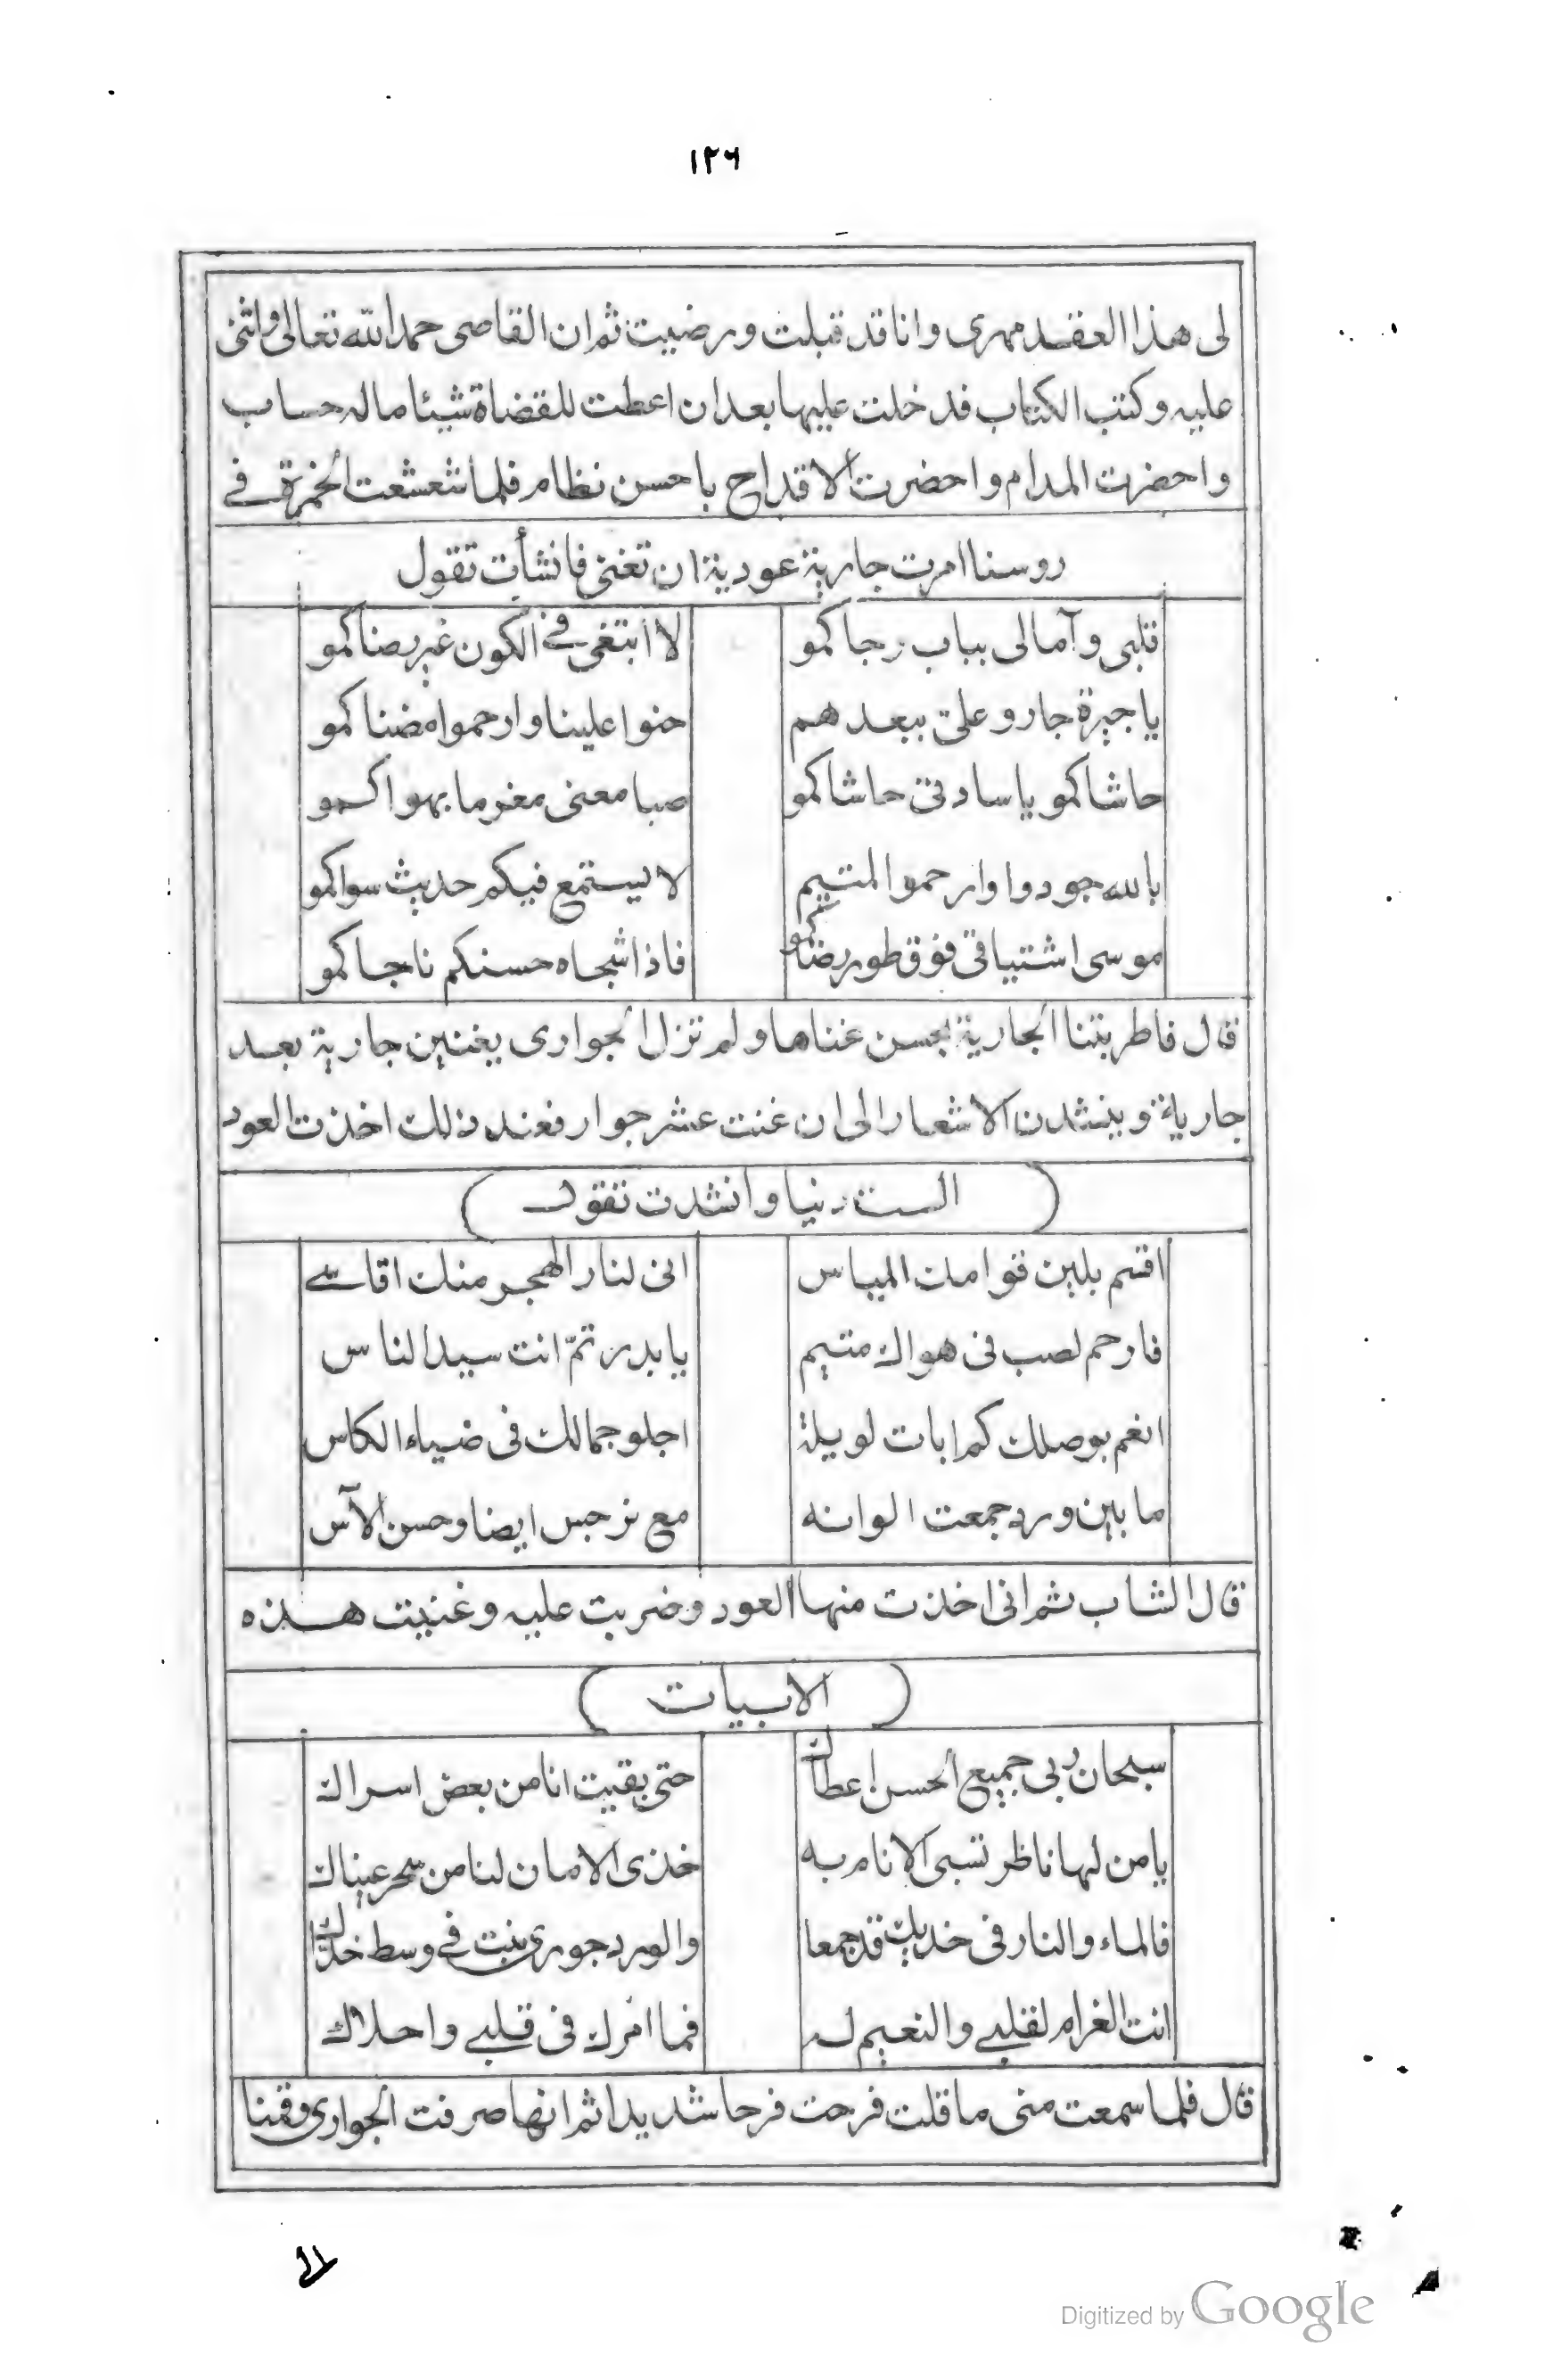 ١٢٦
لى هذا العقد مهرى وانا قد قبلت ورضيت ثم ان القاصى حمد الله تعالى واثنى
عليه وكتب الكتاب فدخلت عليها بعد ان اعطت للقضاة شيئا ماله حساب
واحضرت المدام واحضرت الاقداح باحسن نظام فلما شعشعت الخمرة فى
روسنا امرت جارية عودية ان تغنى فانشأت تقول
قلبى وآمالى بباب رجاكمو لا ابتغى فى الكون غير رضاكمو
ياجيرة جاروعلى ببعدهم حنوا علينا وارحموا مضناكمو
حاشاكمو ياسادتى حاشاكمو صبا معنى مغرما بهواكمو
بالله جودوا وارحموا لمتيم لا يستمع فيكم حديث سواكمو
موسى اشتياقى فوق طور رضاكمو فاذا شجاه حسنكم ناجاكمو
قال فاطربتنا الجارية بحسن غناها ولم تزل الجوارى يغنين جارية بعد
جارية وينشدن الاشعار الى ان غنت عشر جوار فعند ذلك اخذت العود
( الست دنيا وانشدت تقول )
اقسم بلين قوامك المياس انى لنار الهجر منك اقاسى
فارحم لصب فى هواك متيم يابدر تمّ انت سيد الناس
انعم بوصلك كم ابات لويلة اجلو جمالك فى ضياء الكاس
مابين ورد جمعت الوانه مع نرجس ايضا وحسن الآس
قال الشاب ثم انى اخذت منها العود وضربت عليه وغنيت هذه
( الابيات )
سبحان ربى جميع الحسن اعطاك حتى بقيت انا من بعض اسراك
يامن لها ناظر تسبى الانام به خذى الامان لنا من سحر عيناك
فالماء والنار فى خديك قد جمعا والورد جورى نبت فى وسط خدّاك
انت الغرام لقلبى والنعيم له فما امرك فى قلبى واحلاك
قال فلما سمعت منى ما قلت فرحت فرحا شديدا ثم انها صرفت الجوارى وقمنا
Digitized by Google